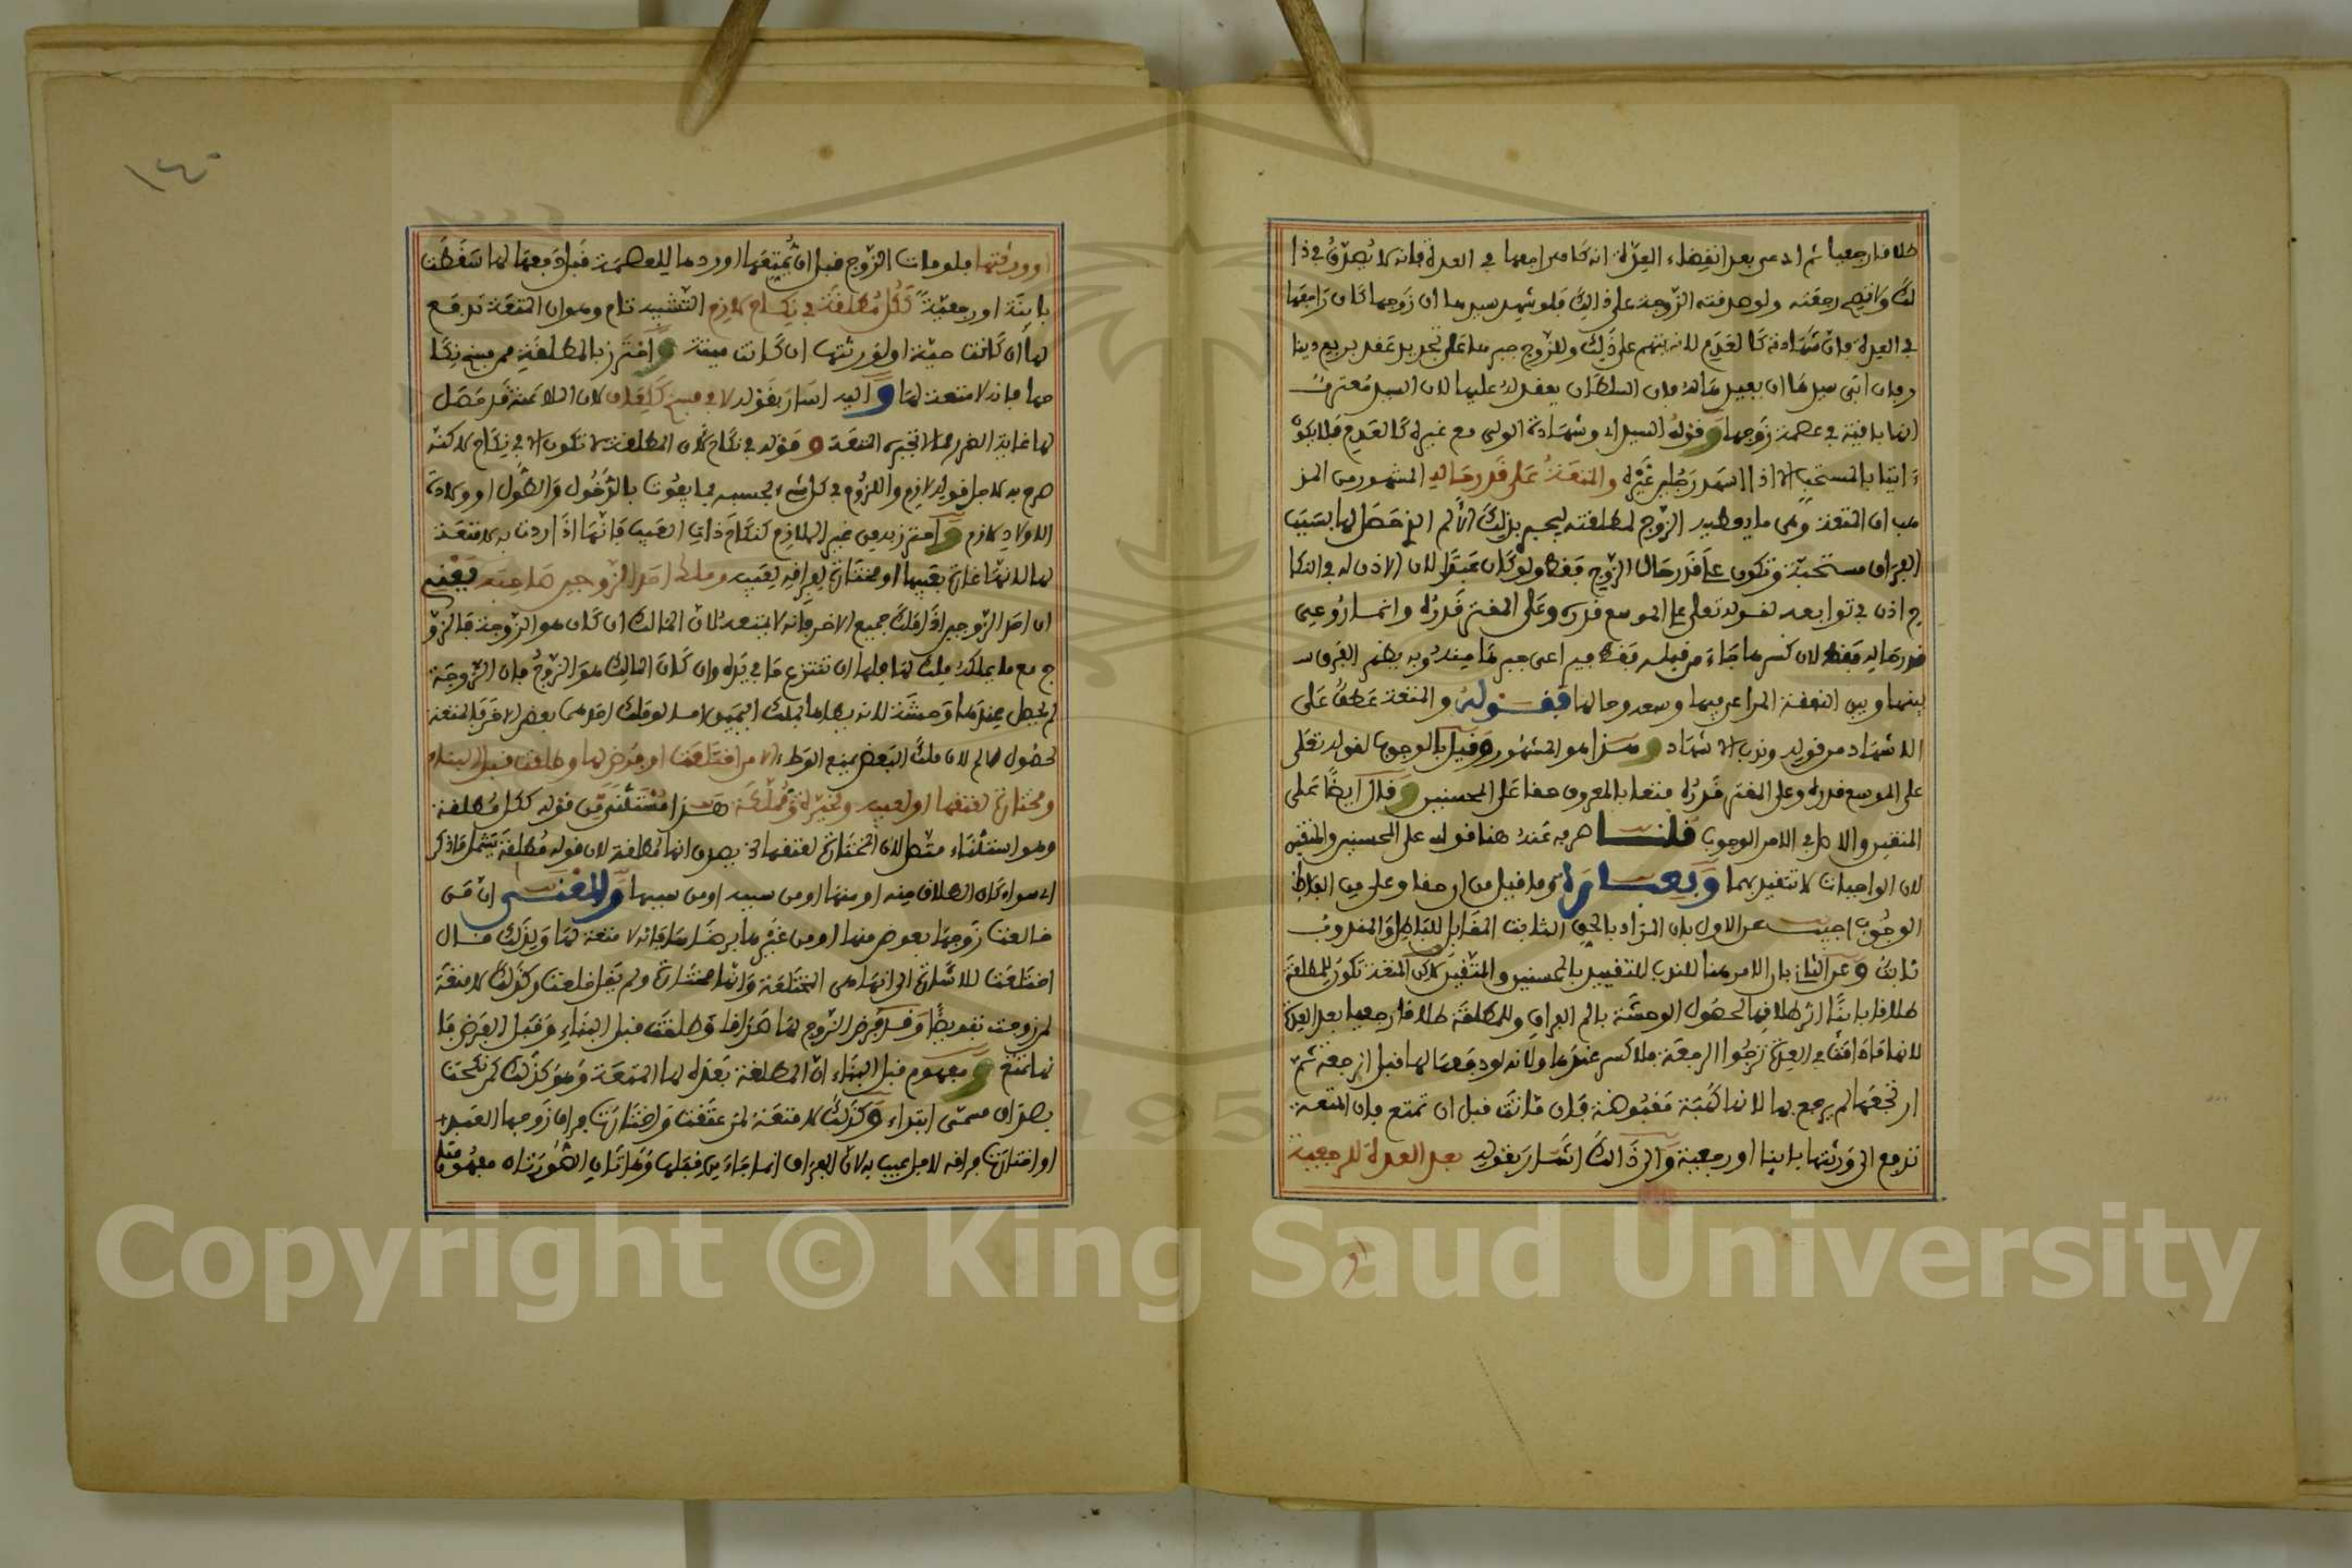 طلاقا رجعيا ثم ادعى بعد انقضاء العدة انه كان راجعها في العدة فانه لا يصدق في ذا
لك ولا تصح رجعته ولو صدقته الزوجة على ذالك فلو شهد سيدها ان زوجها كان راجعها
في العدة فان شهادته كالعدم لانه يتهم على ذلك وللزوج جبرها على تجديد عقد بربع دينا
ر فان ابى سيدها ان يعقد فان السلطان يعقد له عليها لان السيد معترف
انها باقية في عصمة زوجها وقوله السيد اي وشهادة الولي مع غيره كالعدم فلا يكو
ن اتيا بالمستحب الا اذا اشهد رجلين غيره والمتعة على قدر حاله المشهور من المذ
هب ان المتعة وهي ما يعطيه الزوج لمطلقته ليجبر بذلك الالم الذي حصل لها بسبب
الفراق مستحبة وتكون على قدر حال الزوج فقط ولو كان عبدا لان الاذن له في النكا
ح اذن في توابعه لقوله تعلى على الموسع قدره وعلى المقتر قدره وانما روعي
قدر حاله فقط لان كسرها جاء من قبله فقط فيراعى جبرها منه وبه يظهر الفرق
بينها وبين النفقة المراعى فيها وسعه وحالها فقوله والمتعة عطف على
الاشهاد من قوله وندب الاشهاد وهذا هو المشهور وقيل بالوجوب لقوله تعلى
على الموسع قدره وعلى المقتر قدره متعا بالمعروف حقا على المحسنين وقال ايضا على
المتقين والاصل في الامر الوجوب قلنا صرفه عنه هنا قوله على المحسنين والمتقين
لان الواجبات لا تتقيد بهما وبعبارة وما قيل من ان حقا وعلى من الفاظ
الوجوب اجيب عن الاول بان المراد بالحق الثابت المقابل للباطل والمندوب
ثابت وعن الثاني بان الامر هنا للندب للتقييد بالمحسنين والمتقين لاكن المتعة تكون للمطلقة
طلاقا باينا اثر طلاقها لحصول الوحشة بالم الفراق وللمطلقة طلاقا رجعيا بعد العدة
لانها ما دامت في العدة ترجوا الرجعة فلا كسر عندها ولانه لو دفعها لها قبل الرجعة ثم
ارتجعها لم يرجع بها لانها كهبة مقبوضة فان ماتت قبل ان تمتع فان المتعة
تدفع الى ورثتها باينا او رجعية والى ذالك اشار بقوله بعد العدة للرجعية
او
١٤٠
او ورثتها فلو مات الزوج قبل ان يمتعها او ردها للعصمة قبل دفعها لها سقطت
باينة او رجعية ككل مطلقة في نكاح لازم التشبيه تام وهو ان المتعة تدفع
لها ان كانت حية او لورثتها ان كانت ميتة واحترز بالمطلقة ممن فسخ نكا
حها فانه لا متعة لها واليه اشار بقوله لا في فسخ كلعان لان الملاعنة قد حصل
لها غاية الضرر فلا تجبره المتعة وقوله في نكاح لان المطلقة لا تكون الا في نكاح لاكنه
صرح به لاجل قوله لازم واللزوم في كل شيء بحسبه بما يفوت بالدخول والطول او ولادة
الاولاد لازم واحترز به من غير اللازم كنكاح ذات العيب فانها اذا ردت به لا متعة
لها لانها غارة بعيبها او مختارة لفراقه لعيبه وملك احد الزوجين صاحبه يعني
ان احد الزوجين اذا ملك جميع الاخر فانه لا متعة لان المالك ان كان هو الزوجة فالزو
ج مع ما يملكه ملك لها فلها ان تنتزع ما في يده وان كان المالك هو الزوج فان الزوجة
لم يحصل عندها وحشة لانه يطاها بملك اليمين اما لو ملك احدهما بعض الاخر فالمتعة
لحصول الالم لان ملك البعض يمنع الوطء الا من اختلعت او فرض لها وطلقت قبل البناء
ومختارة لعتقها او لعيبه ومخيرة ومملكة هذا مستثنى من قوله ككل مطلقة
وهو استثناء متصل لان المختارة لعتقها يصدق انها مطلقة لان قوله مطلقة يشمل ما ذكر
اي سواء كان الطلاق منه او منها او من سببه او من سببها والمعنى ان من
خالعت زوجها بعوض منها او من غيرها برضاها فانه لا متعة لها ولذلك قال
اختلعت للاشارة الى انها هي المختلعة وانها مختارة ولم يقل خلعت وكذلك لا متعة
لمن زوجت تفويضا وقد فرض الزوج لها صداقا وطلقت قبل البناء وقبل الفرض فا
نها تمتع ومفهوم قبل البناء ان المطلقة بعده لها المتعة وهو كذلك كمن نكحت
بصداق مسمى ابتداء وكذلك لا متعة لمن عتقت واختارت فراق زوجها العبد
او اختارت فراقه لاجل عيب به لان الفراق انما جاء من قبلها وهاتان الصورتان مفهوم